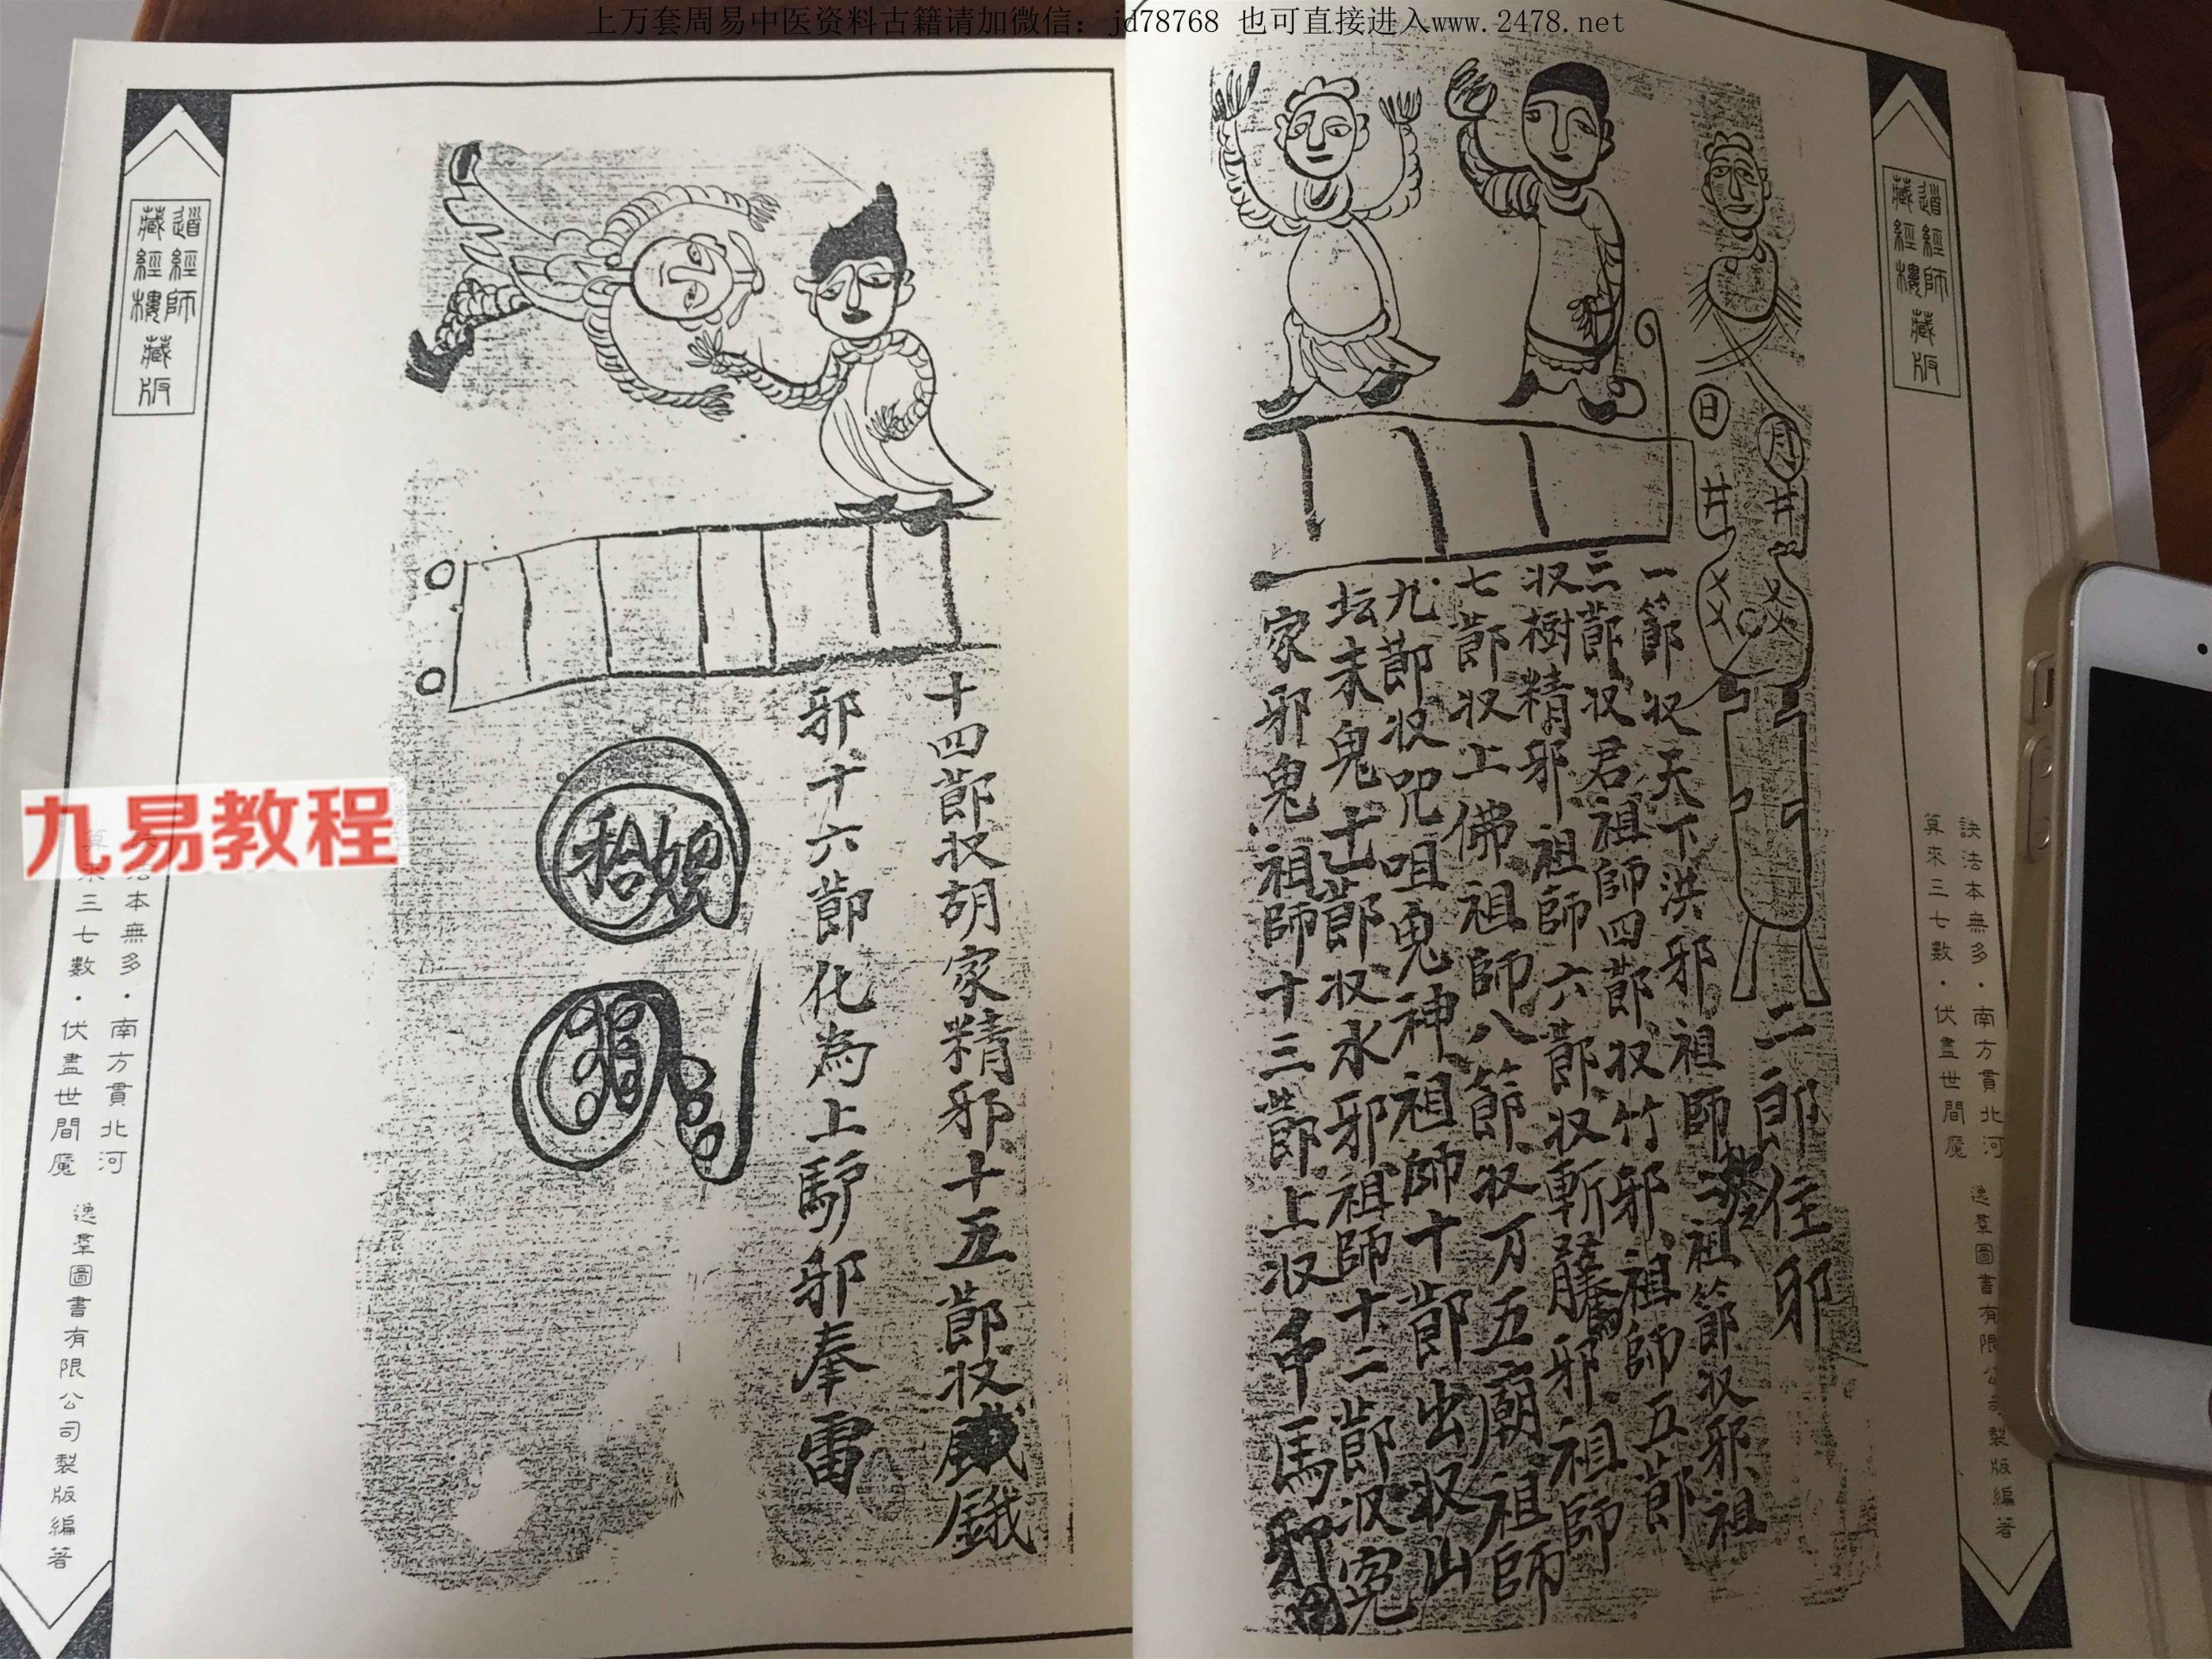 上万套周易中医资料古籍请加微信：jd78768 也可直接进入www.2478.net
道經師
藏經樓
藏版
訣法本無多·南方貫北河
算來三七數·伏盡世間魔
逸羣圖書有限公 製版編著
日
月
井 井
二郎 邪
一節収天下洪邪祖師 祖節収邪祖
三節収君祖師四節収竹邪祖師五節
収樹精邪祖師六節収斬 邪祖師
七節収上佛祖師八節収万五廟祖師
九節収咒咀鬼神祖師十節出収山
坛未鬼 節収水邪祖師十二節収冤
家邪鬼祖師十三節上収 馬邪
道經師
藏經樓
藏版
十四節収胡家精邪十五節収 鐵
邪十六節化為上 邪奉雷
九易教程
本無多·南方貫北河
三七數·伏盡世間魔
逸羣圖書有限公司製版編著